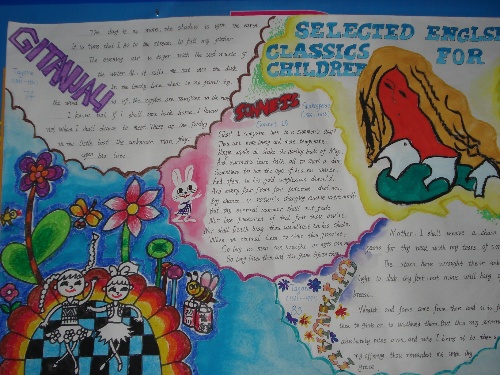 GITANJALI
Tagore
74
The day is no more, the shadow is upon the earth.
It is time that I go to the stream to fill my pitcher.
The evening air is eager with the sad music of
the water. It calls me out into the dusk.
In the lonely lane there is no passer by,
the wind is up, the ripples are rampant in the river.
I know not if I shall come back home. I know
not whom I shall chance to meet. There at the fording
in the little boat the unknown man plays
upon his lute.
SELECTED ENGLISH
CLASSICS FOR
CHILDREN
SONNETS
Shakespeare
Sonnet 18
Shall I compare thee to a summer's day?
Thou art more lovely and more temperate:
Rough winds do shake the darling buds of May,
And summer's lease hath all too short a date:
Sometime too hot the eye of heaven shines,
And often is his gold complexion dimm'd;
And every fair from fair sometime declines,
By chance or nature's changing course
But thy eternal summer shall not fade
Nor lose possession of that fair thou
Nor shall Death brag thou wander'st in his shade,
When in eternal lines to time thou growest:
So long as men can breathe or eyes can see,
So long lives this and this gives life to thee.
GITANJALI
Tagore
83
Mother, I shall weave a chain
pearls for thy neck with my tears of sorrow.
The stars have wrought their anklets
light to deck thy feet, but mine will hang
breast.
Wealth and fame come from thee and it is for
thee to give or to withhold them. But this my sorrow
absolutely mine own, and when I bring it to thee
my offering thou rewardest me with thy
grace.